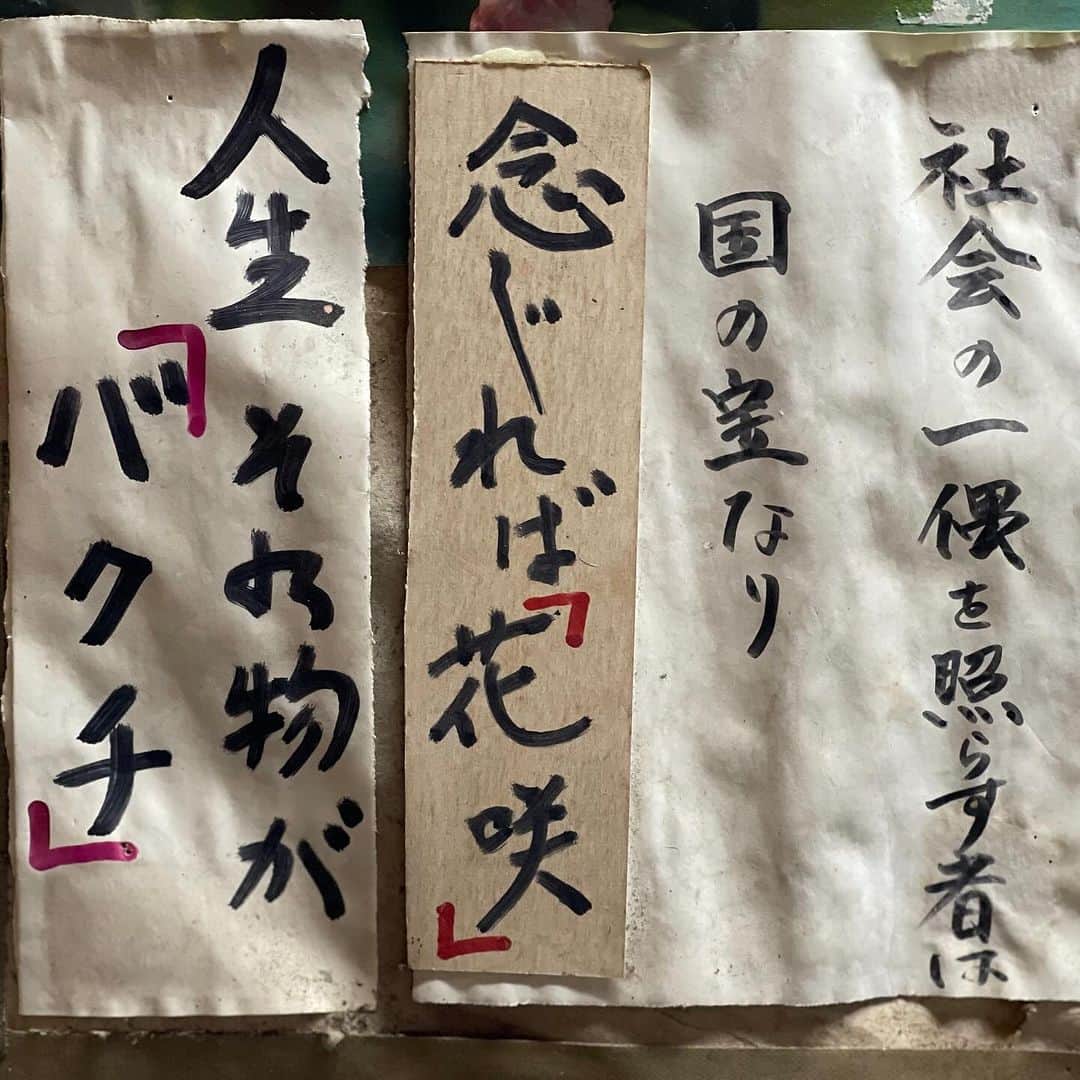 社会の一偶を照らす者は
国の宝なり
念じれば「花咲」
人生その物が
「バクチ」